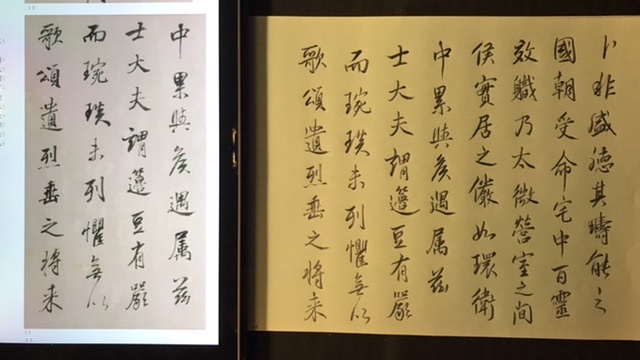 卜非盛德其疇能之
國朝受命宅中百靈
效軄乃太微營室之間
侯實居之儼如環衛
中累與侯遇属茲
士大夫謂籩豆有嚴
而琬琰未列懼無以
歌頌遺烈垂之将来
中累與侯遇属茲
士大夫謂籩豆有嚴
而琬琰未列懼無以
歌頌遺烈垂之将来